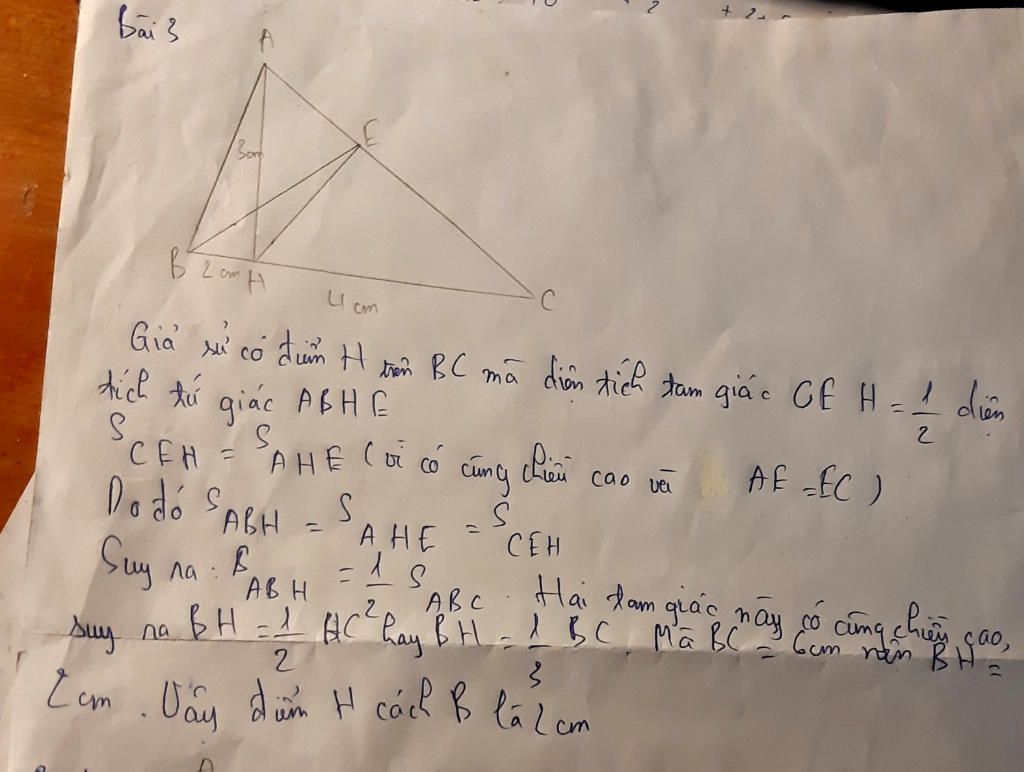 Bài 3
A
3cm
E
B 2 cm H
4 cm
C
Giả sử có điểm H trên BC mà diện tích tam giác CEH = 1/2 diện
tích tứ giác ABHE
S CEH = S AHE (vì có cùng chiều cao và AE = EC)
Do đó S ABH = S AHE = S CEH
Suy ra: S ABH = 1/2 S ABC. Hai tam giác này có cùng chiều cao,
suy ra BH = 1/2 HC hay BH = 1/3 BC. Mà BC = 6cm nên BH =
2 cm. Vậy điểm H cách B là 2cm
A